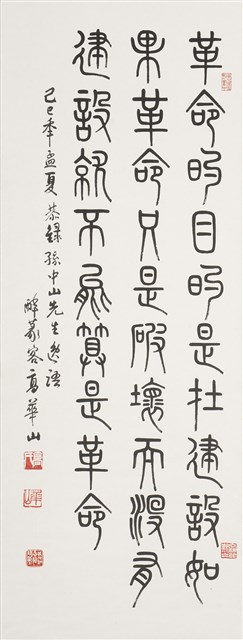 革命的目的是在建設如
果革命只是破壞而沒有
建設就不能算是革命
己巳年孟夏恭錄孫中山先生遺語
醉篆客高華山